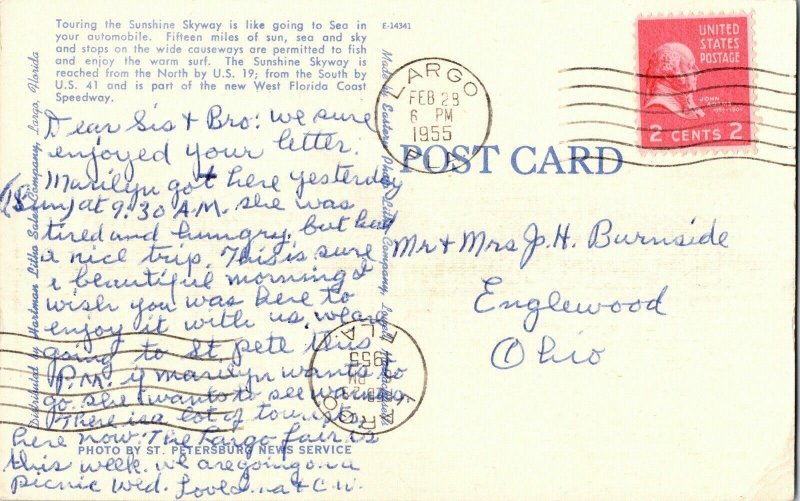 Touring the Sunshine Skyway is like going to Sea in
your automobile. Fifteen miles of sun, sea and sky
and stops on the wide causeways are permitted to fish
and enjoy the warm surf. The Sunshine Skyway is
reached from the North by U.S. 19; from the South by
U.S. 41 and is part of the new West Florida Coast
Speedway.
E-14341
Distributed by Hartman Litho Sales Company, Largo, Florida
Made by Eastern Photo Litho Company,
LARGO
FEB 28
6 PM
1955
FLA
UNITED
STATES
POSTAGE
JOHN
2 CENTS 2
POST CARD
Dear Sis & Bro: we sure
enjoyed your letter.
Marilyn got here yesterday
(Sun) at 9:30 A.M. she was
tired and hungry. but had
a nice trip. This is sure
a beautiful morning &
wish you was here to
enjoy it with us. we are
going to St. Pete this
P.M. if marilyn wants to
go. she wants to see
There is a lot of tourists
here now. The Largo fair is
this week. we are going
picnic Wed. Love
Mr & Mrs J. H. Burnside
Englewood
Ohio
LARGO
PM
1955
FLA
PHOTO BY ST. PETERSBURG NEWS SERVICE